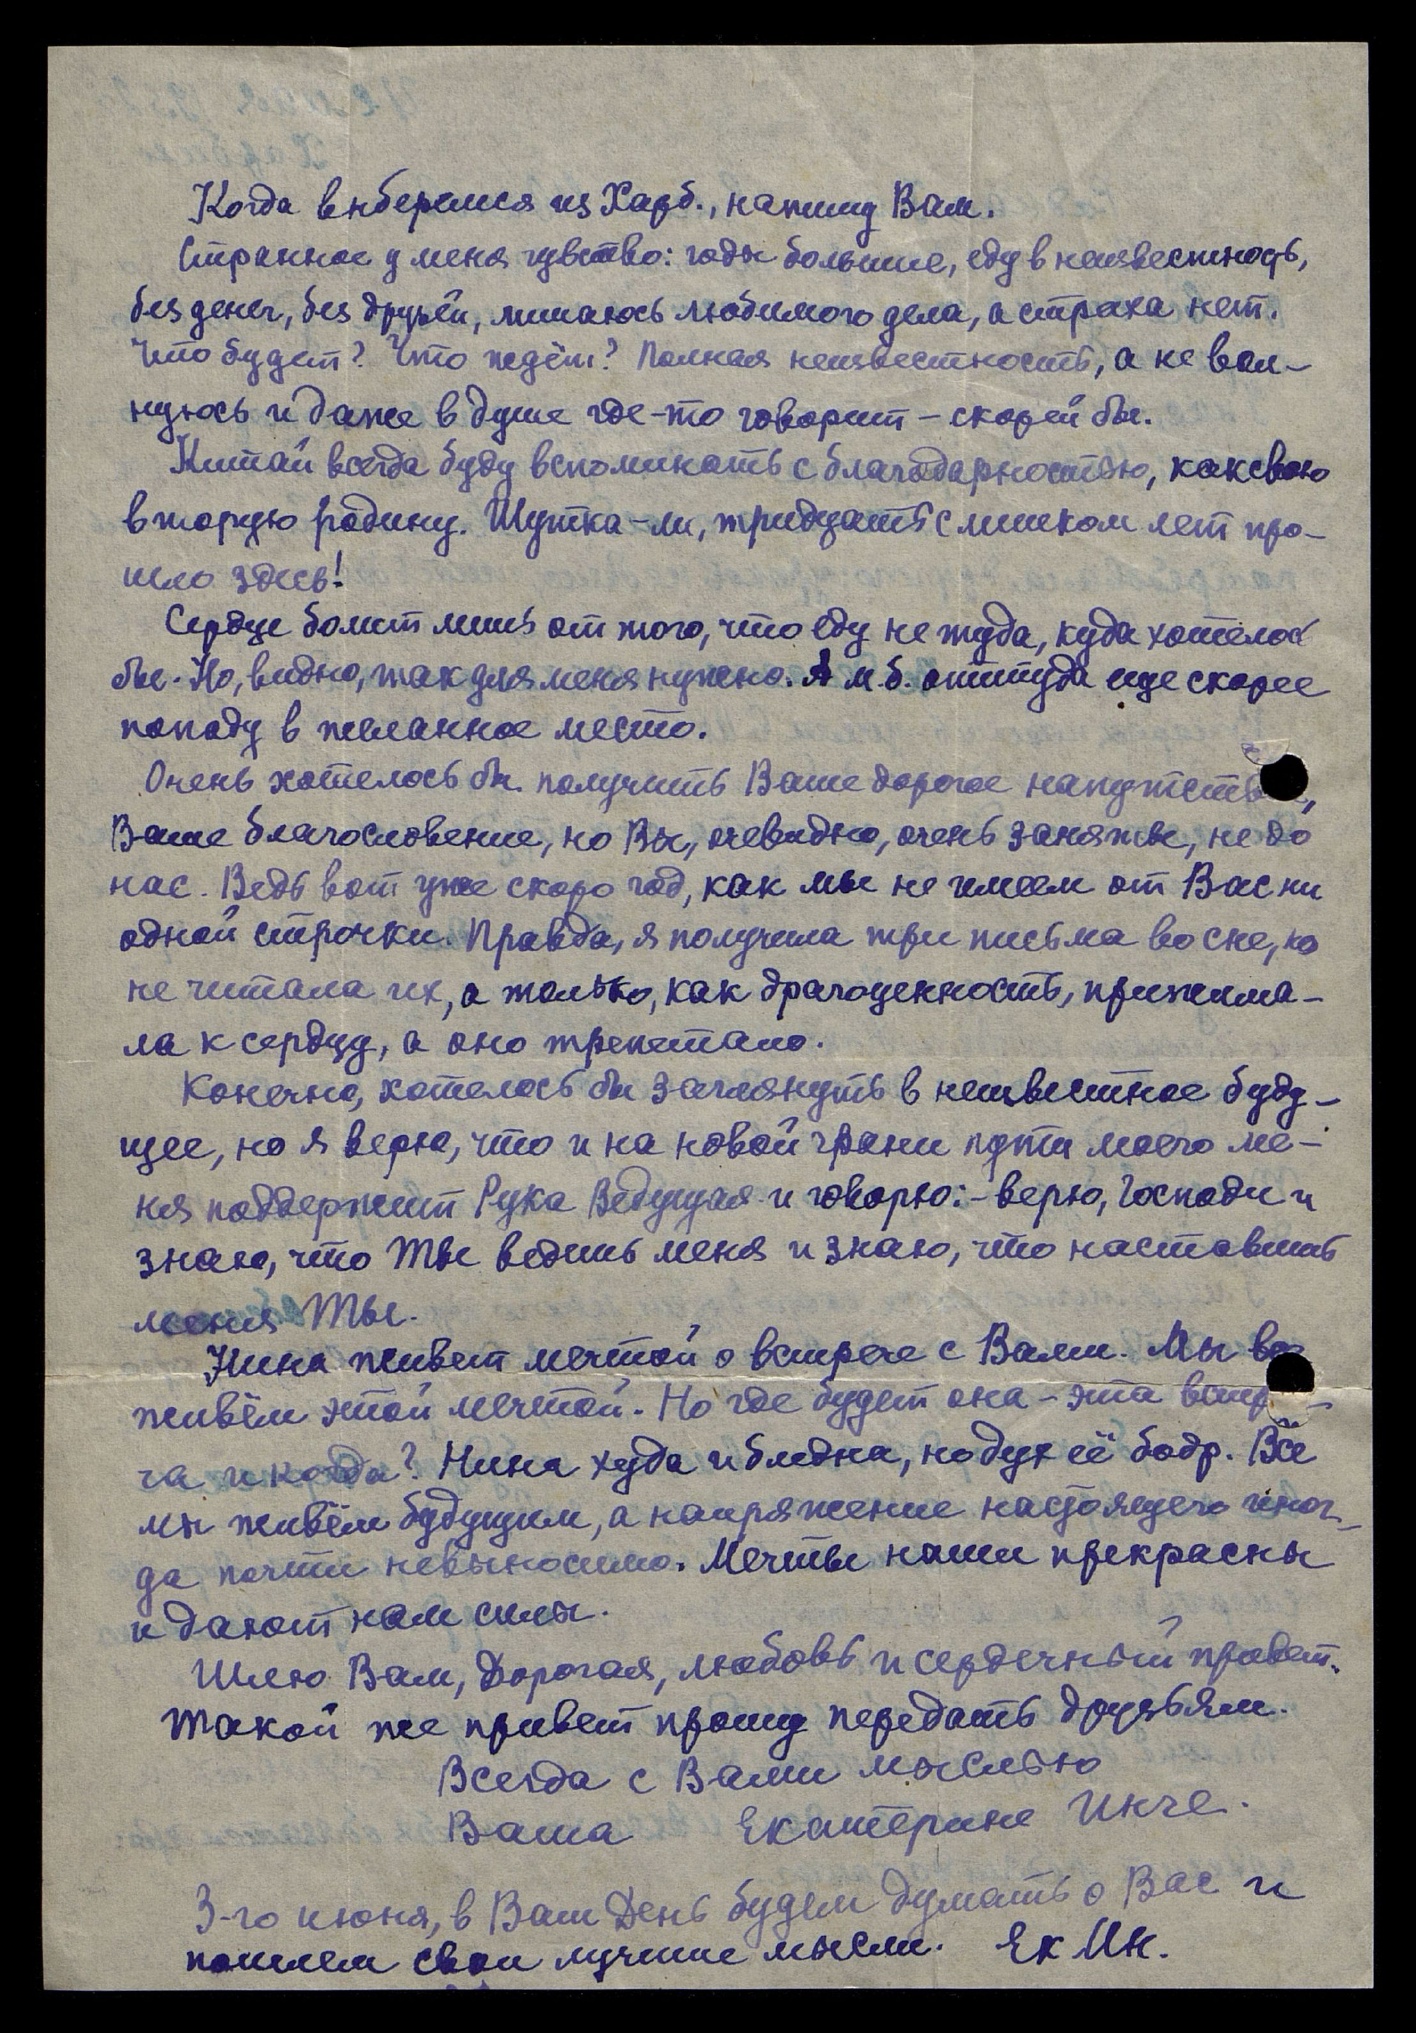 Когда выберемся из Харб., напишу Вам.
Странное у меня чувство: годы большие, еду в неизвестность,
без денег, без друзей, лишаюсь любимого дела, а страха нет.
Что будет? Что ждёт? Полная неизвестность, а не вол-
нуюсь и даже в душе где-то говорит – скорей бы.
Китай всегда буду вспоминать с благодарностью, как свою
вторую родину. Шутка-ли, тридцать с лишком лет про-
шло здесь!
Сердце болит лишь от того, что еду не туда, куда хотелось
бы. Но, видно, так для меня нужно. А м.б. оттуда еще скорее
попаду в желанное место.
Очень хотелось бы получить Ваше дорогое напутствие,
Ваше благословение, но Вы, очевидно, очень заняты, не до
нас. Ведь вот уже скоро год, как мы не имеем от Вас ни
одной строчки. Правда, я получила три письма во сне, но
не читала их, а только, как драгоценность, прижима-
ла к сердцу, а оно трепетало.
Конечно, хотелось бы заглянуть в неизвестное буду-
щее, но я верю, что и на новой грани пути моего ме-
ня поддержит Рука Ведущая и говорю: – верю, Господи и
знаю, что Ты ведешь меня и знаю, что наставишь
меня Ты.
Нина живет мечтой о встрече с Вами. Мы все
живём этой мечтой. Но где будет она – эта встре-
ча и когда? Нина худа и бледна, но дух её бодр. Все
мы живём будущим, а напряжение настоящего иног-
да почти невыносимо. Мечты наши прекрасны
и дают нам силы.
Шлю Вам, Дорогая, любовь и сердечный привет.
Такой же привет прошу передать друзьям.
Всегда с Вами мыслью
Ваша Екатерина Инге.
3-го июня, в Ваш День будем думать о Вас и
пошлем свои лучшие мысли. Ек Ин.